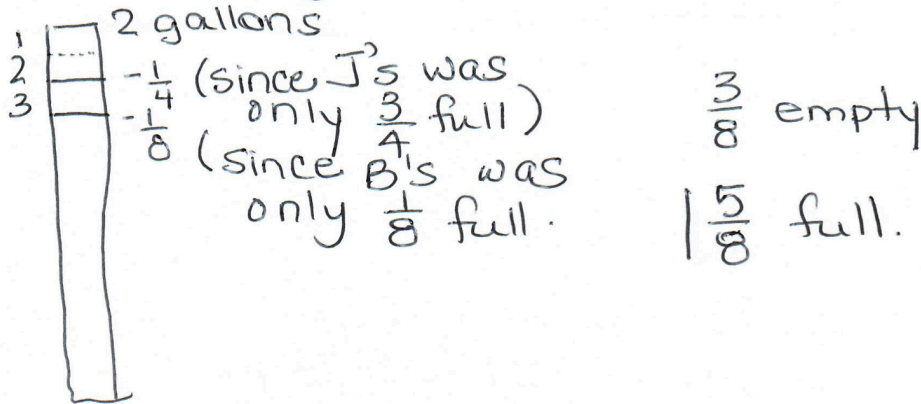 2 gallons
1
2
3
- 1/4 (since J's was
only 3/4 full)
- 1/8 (since B's was
only 1/8 full.
3/8 empty
1 5/8 full.